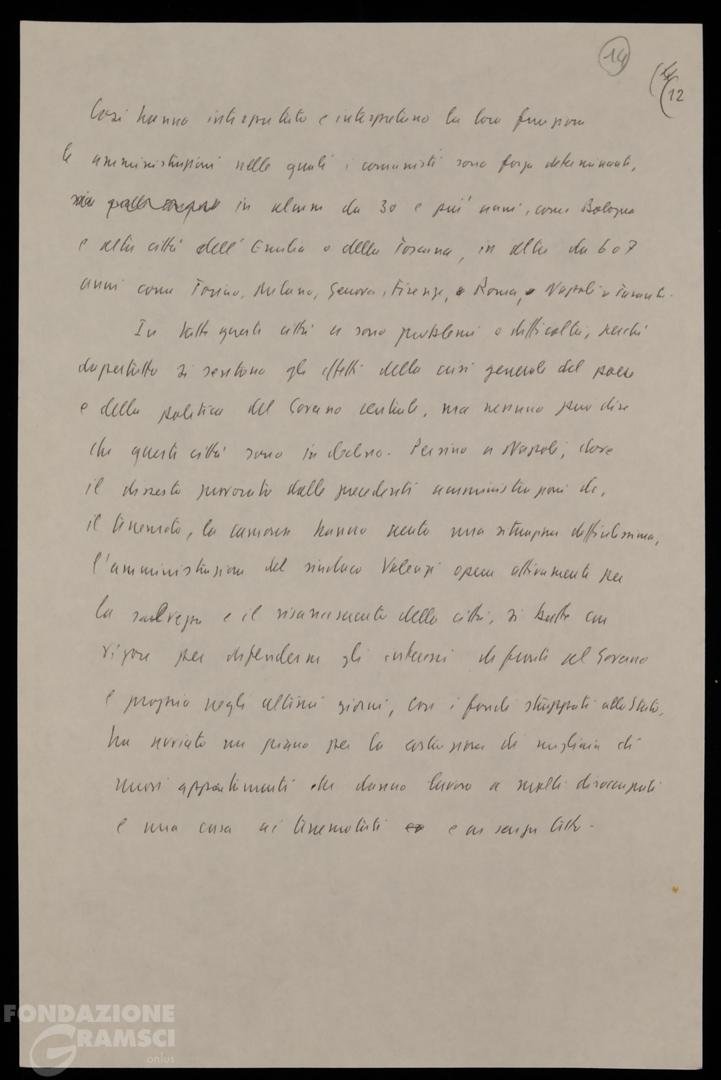 14
12
Così hanno interpretato e interpretano la loro funzione
le amministrazioni nelle quali i comunisti sono forza determinante,
sia in alcune da 30 e più anni, come Bologna
e altre città dell'Emilia o della Toscana, in altre da 6 o 7
anni come Torino, Milano, Genova, Firenze, Roma, Napoli o Taranto.
In tutte queste città ci sono problemi e difficoltà, perché
dapertutto si sentono gli effetti della crisi generale del paese
e della politica del Governo centrale, ma nessuno può dire
che queste città sono in declino. Persino a Napoli, dove
il dissesto provocato dalle precedenti amministrazioni dc,
il terremoto, la camorra hanno creato una situazione difficilissima,
l'amministrazione del sindaco Valenzi opera attivamente per
la salvezza e il risanamento della città, si batte con
vigore per difenderne gli interessi di fronte al Governo
e proprio negli ultimi giorni, con i fondi strappati allo Stato,
ha avviato un piano per la costruzione di migliaia di
nuovi appartamenti che danno lavoro a molti disoccupati
e una casa ai terremotati e ai senza tetto.
FONDAZIONE
GRAMSCI
onlus